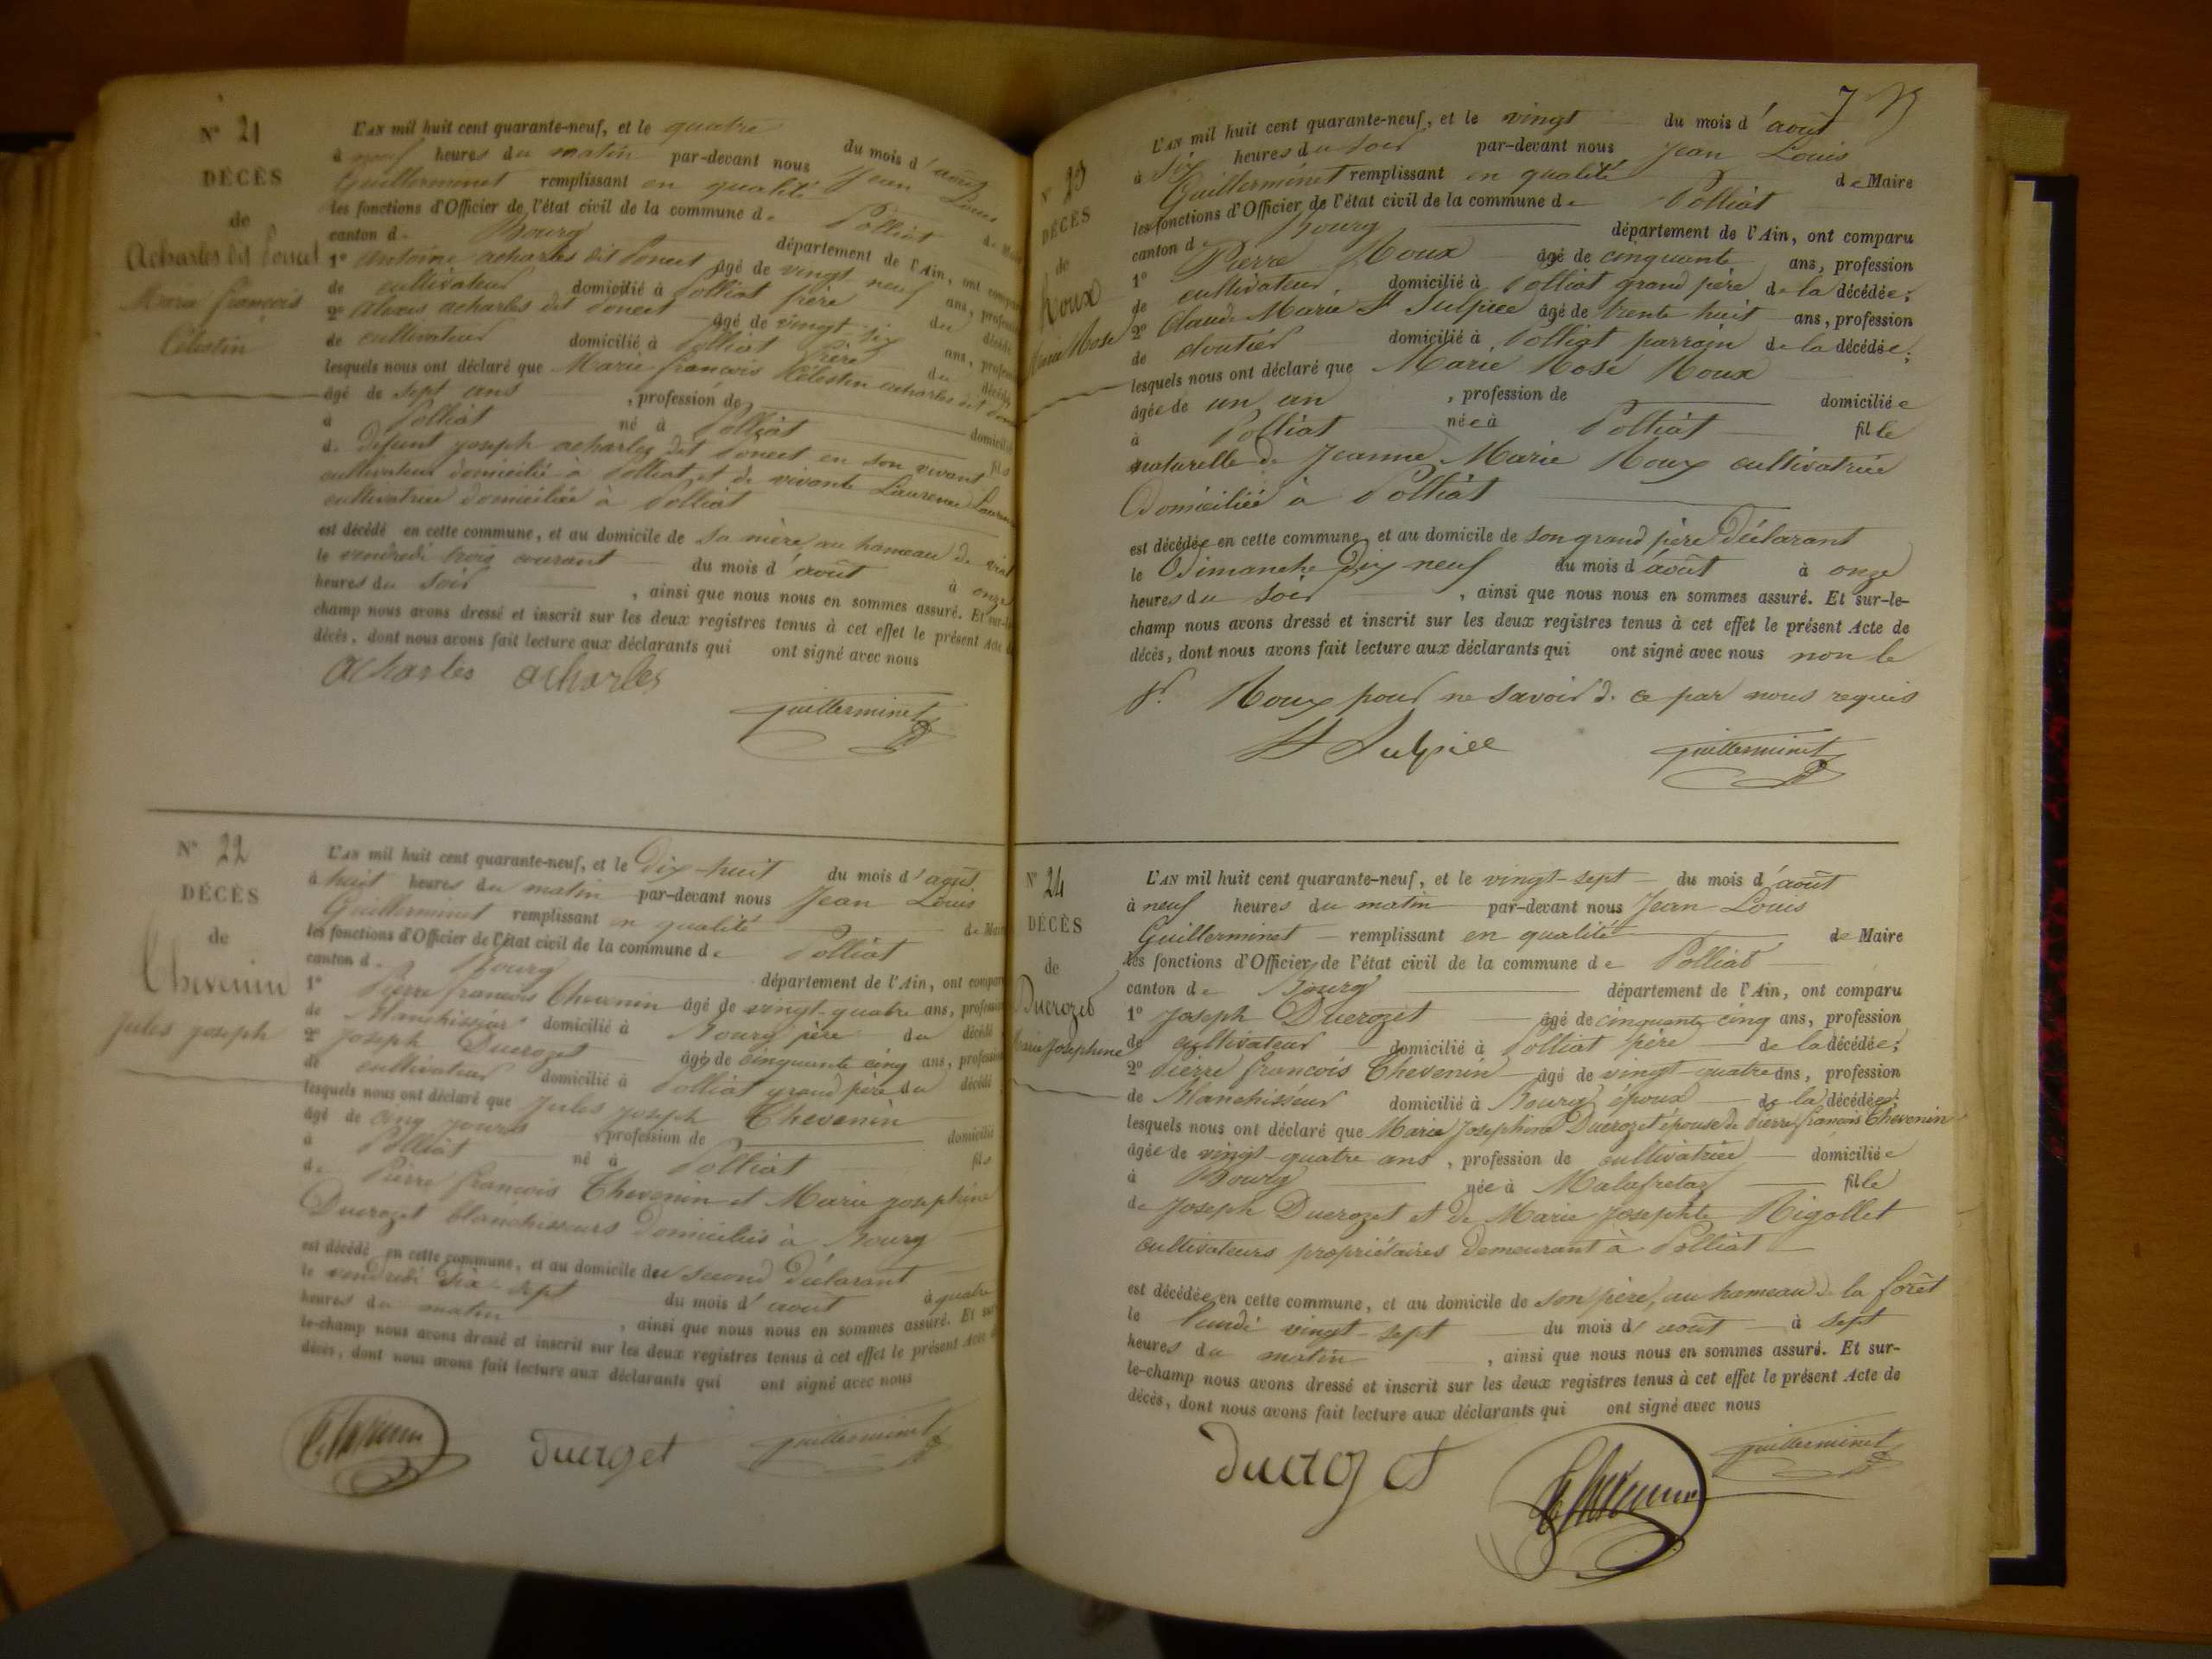 N° 21
DÉCÈS
de
Acharles dit Poncet
Marie françois
Célestin
L'AN mil huit cent quarante-neuf, et le quatre du mois d'août
à neuf heures du matin par-devant nous Jean Louis
Guillerminet remplissant en qualité de
les fonctions d'Officier de l'état civil de la commune de Polliat
canton de Bourg département de l'Ain, ont
1° Antoine acharles dit Poncet âgé de vingt neuf ans,
de cultivateur domicilié à Polliat frère du décédé
2° alexis acharles dit Poncet âgé de vingt-six ans,
de cultivateur domicilié à Polliat frère du décédé
lesquels nous ont déclaré que Marie françois Célestin acharles dit
âgé de sept ans , profession de
à Polliat né à Polliat fils
de défunt joseph acharles dit Poncet en son vivant
cultivateur domicilié à Polliat et de vivante Laurence
cultivatrice domiciliée à Polliat
est décédé en cette commune, et au domicile de sa mère, au hameau de
le vendredi trois courant du mois d'août à onze
heures du soir , ainsi que nous nous en sommes assuré. Et sur-le
champ nous avons dressé et inscrit sur les deux registres tenus à cet effet le présent Acte
décès, dont nous avons fait lecture aux déclarants qui ont signé avec nous
acharles acharles
guillerminet
N° 22
DÉCÈS
de
Chevenin
Jules joseph
L'AN mil huit cent quarante-neuf, et le Dix-huit du mois d'août
à huit heures du matin par-devant nous Jean Louis
Guillerminet remplissant en qualité de
les fonctions d'Officier de l'état civil de la commune de Polliat
canton de Bourg département de l'Ain, ont
1° Pierre francois Chevenin âgé de vingt-quatre ans,
de Blanchisseur domicilié à Bourg père du décédé
2° Joseph Ducrozet âgé de cinquante cinq ans,
de cultivateur domicilié à Polliat grand père du décédé
lesquels nous ont déclaré que Jules joseph Chevenin
âgé de cinq jours , profession de domicilié
à Polliat né à Polliat fils
de Pierre françois Chevenin et Marie josephine
Ducrozet blanchisseurs domiciliés à Bourg
est décédé en cette commune, et au domicile du second déclarant
le vendredi dix-sept du mois d'août à quatre
heures du matin , ainsi que nous nous en sommes assuré. Et
le-champ nous avons dressé et inscrit sur les deux registres tenus à cet effet le présent Acte
décès, dont nous avons fait lecture aux déclarants qui ont signé avec nous
Chevenin ducrozet guillerminet
7
N° 23
DÉCÈS
de
Roux
Marie Rose
L'AN mil huit cent quarante-neuf, et le vingt du mois d'août
à six heures du soir par-devant nous Jean Louis
Guillerminet remplissant en qualité de Maire
les fonctions d'Officier de l'état civil de la commune de Polliat
canton de Bourg département de l'Ain, ont comparu
1° Pierre Roux âgé de cinquante ans, profession
de cultivateur, domicilié à Polliat grand père de la décédée;
2° Claude Marie St Sulpice âgé de trente huit ans, profession
de cloutier domicilié à Polliat parrain de la décédée;
lesquels nous ont déclaré que Marie Rose Roux
âgée de un an , profession de domiciliée
à Polliat née à Polliat fille
naturelle de Jeanne Marie Roux cultivatrice
Domiciliée à Polliat
est décédée en cette commune, et au domicile de son grand père Déclarant
le Dimanche Dix neuf du mois d'août à onze
heures du soir , ainsi que nous nous en sommes assuré. Et sur-le-
champ nous avons dressé et inscrit sur les deux registres tenus à cet effet le présent Acte de
décès, dont nous avons fait lecture aux déclarants qui ont signé avec nous non le
Sr. Roux pour ne savoir de ce par nous requis
St Sulpice guillerminet
N° 24
DÉCÈS
de
Ducrozet
Marie Josephine
L'AN mil huit cent quarante-neuf, et le vingt-sept du mois d'août
à neuf heures du matin par-devant nous Jean Louis
Guillerminet remplissant en qualité de Maire
les fonctions d'Officier de l'état civil de la commune de Polliat
canton de Bourg département de l'Ain, ont comparu
1° Joseph Ducrozet âgé de cinquante cinq ans, profession
de cultivateur domicilié à Polliat père de la décédée;
2° Pierre francois Chevenin âgé de vingt-quatre ans, profession
de Blanchisseur domicilié à Bourg époux de la décédée;
lesquels nous ont déclaré que Marie Josephine Ducrozet épouse de Pierre francois Chevenin
âgée de vingt-quatre ans , profession de cultivatrice domiciliée
à Bourg née à Malafretaz fille
de Joseph Ducrozet et de Marie Josephte Rigollet
cultivateurs propriétaires demeurant à Polliat
est décédée en cette commune, et au domicile de son père, au hameau de la forêt
le lundi vingt-sept du mois d'août à sept
heures du matin , ainsi que nous nous en sommes assuré. Et sur-
le-champ nous avons dressé et inscrit sur les deux registres tenus à cet effet le présent Acte de
décès, dont nous avons fait lecture aux déclarants qui ont signé avec nous
ducrozet Chevenin guillerminet